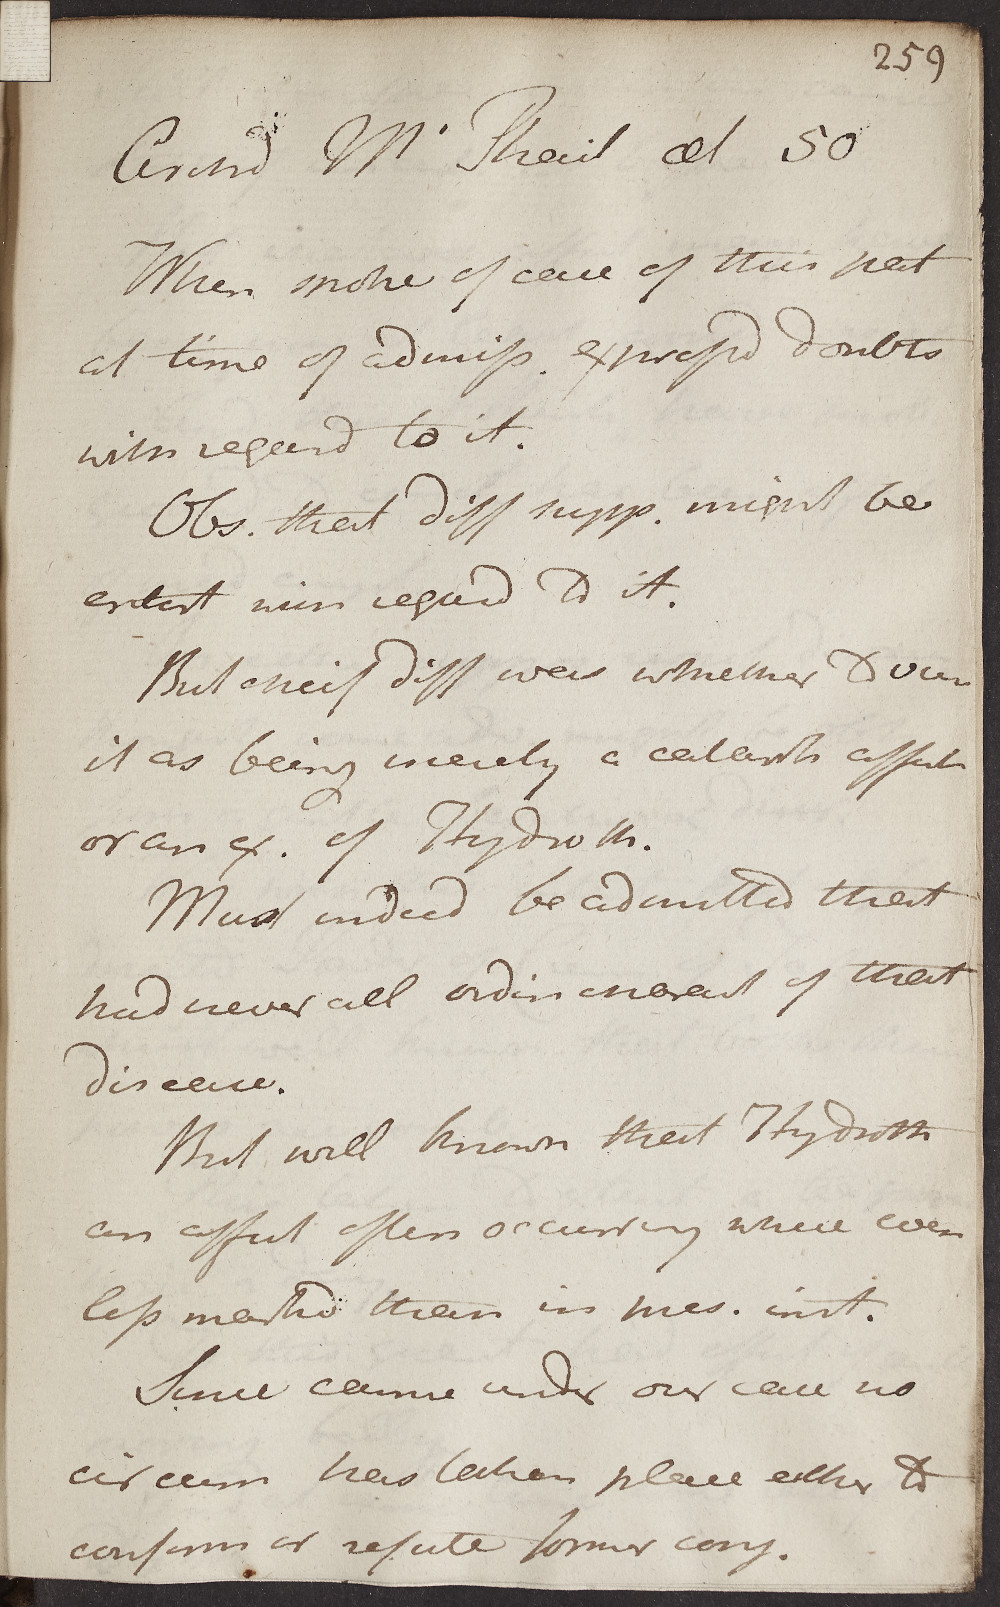 259
Archd Mc Phail æt 50
When spoke of case of this pat
at time of admiss. express'd doubts
with regard to it.
Obs. that diff supp. might be
entert with regard to it.
But cheif diff was whether to view
it as being merely a catarrh affect
or an ex. of Hydroth.
Must indeed be admitted that
had never all ordin charact of that
disease.
But well known that Hydroth
an affect often occurring where even
less marked than in pres. inst.
Since came under our care no
circum has taken place either to
confirm or refute former conj.